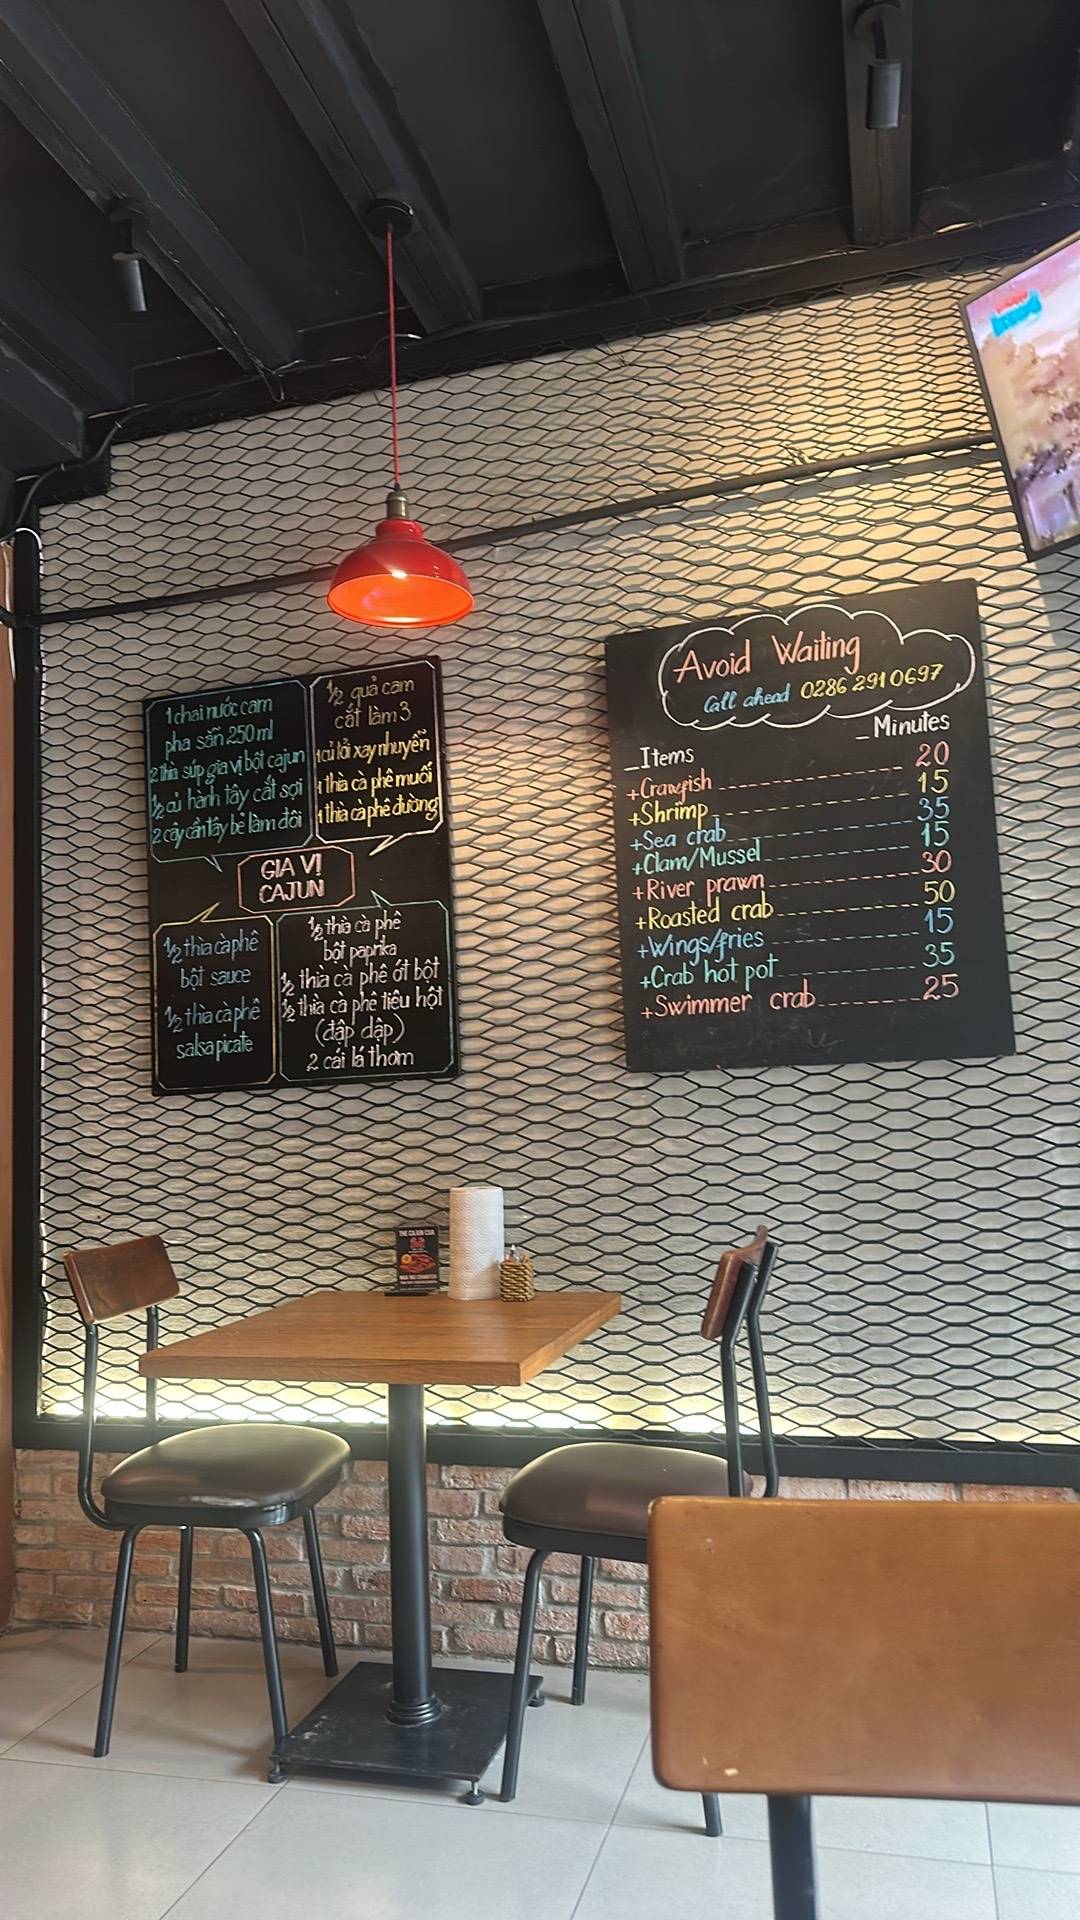 1 chai nước cam
pha sẵn 250 ml
2 thìa súp gia vị bột cajun
½ củ hành tây cắt sợi
2 cây cần tây bẻ làm đôi
½ quả cam
cắt làm 3
1 củ tỏi xay nhuyễn
1 thìa cà phê muối
1 thìa cà phê đường
GIA VỊ
CAJUN
½ thìa cà phê
bột sauce
½ thìa cà phê
salsa picate
½ thìa cà phê
bột paprika
½ thìa cà phê ớt bột
½ thìa cà phê tiêu hột
(đập dập)
2 cái lá thơm
Avoid Waiting
Call ahead 0286 291 0697
_Items _Minutes
+Crawfish 20
+Shrimp 15
+Sea crab 35
+Clam/Mussel 15
+River prawn 30
+Roasted crab 50
+Wings/fries 15
+Crab hot pot 35
+Swimmer crab 25
THE CAJUN CUA